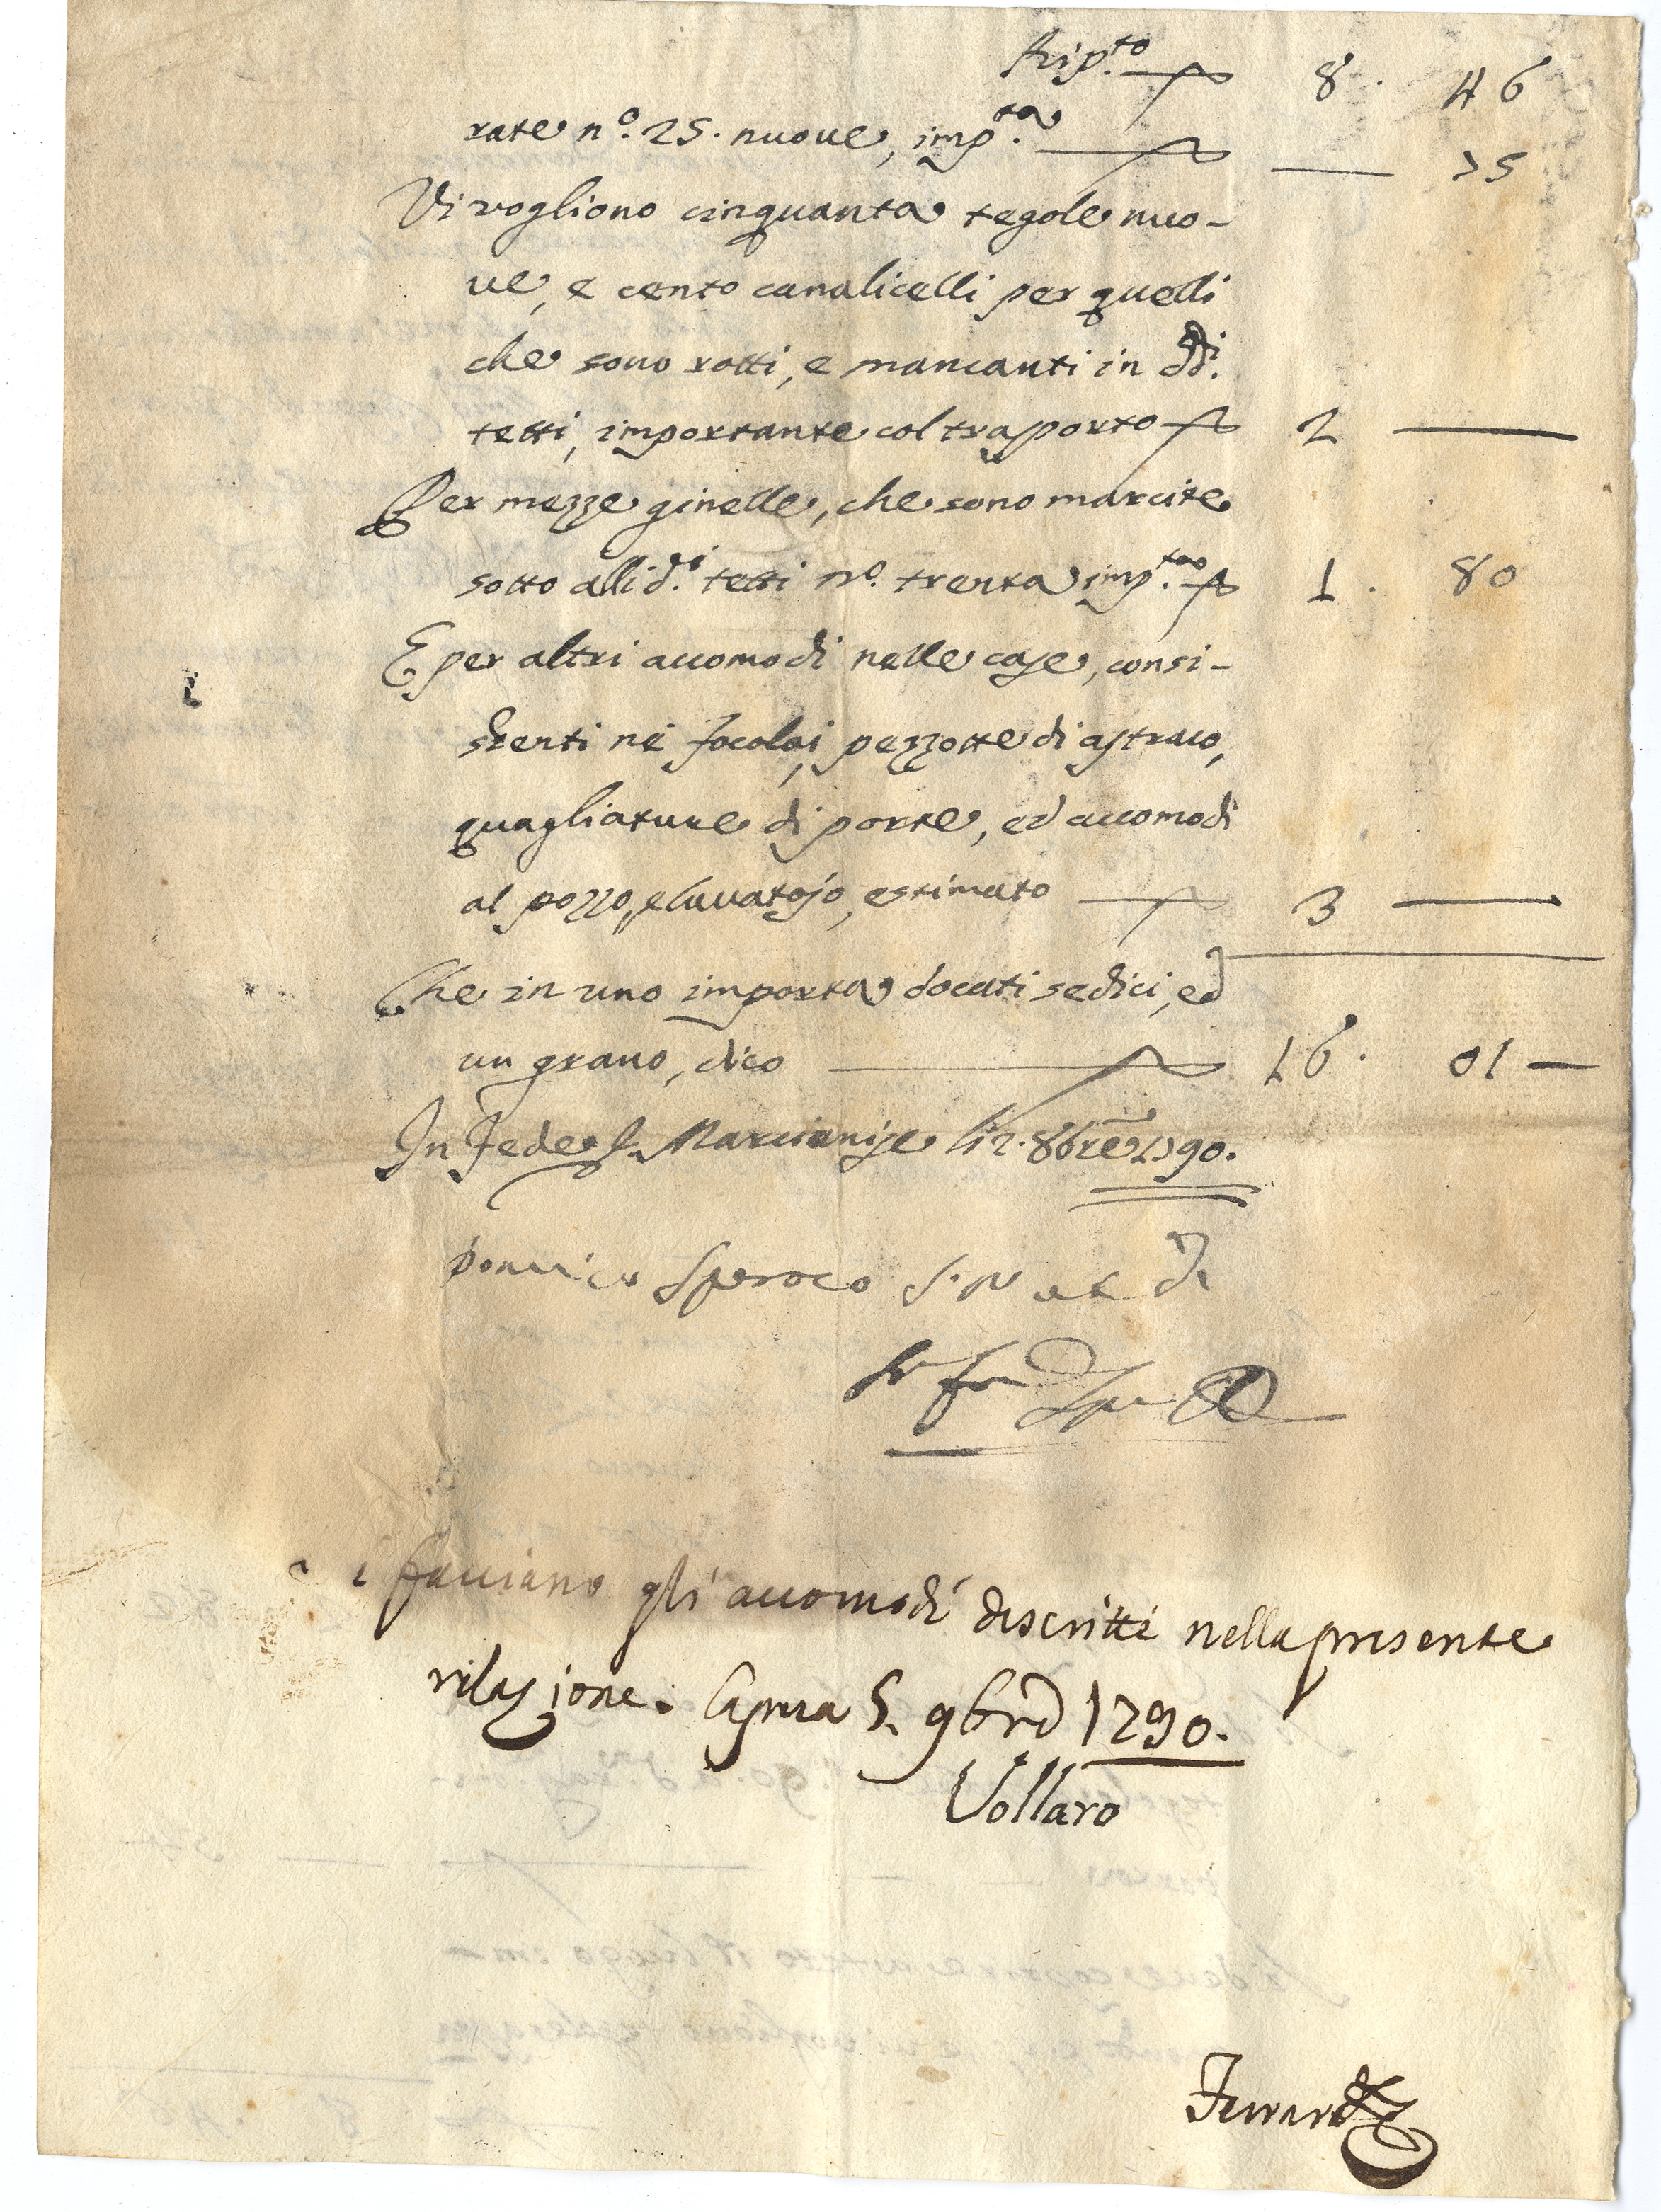 Rip.to 8. 46
rate n.o 25. nuove, imp.ta — 75
Vi vogliono cinquanta tegole nuo-
ve, e cento canalicelli per quelli
che sono rotti, e mancanti in dd.i
tetti, importante col trasporto 2 —
Per mezze ginelle, che sono marcite
sotto alli d.i tetti n.o trenta imp.tao 1. 80
E per altri accomodi nelle case, consi-
stenti nè focolai, pezzotte di astraco,
quagliature di porte, ed accomodi
al pozzo, e lavatojo, estimato 3 —
Che in uno importa docati sedici, ed
un grano, dico 16. 01 —
In fede Marcianise li 2. 8bre 1790.
Si facciano gli accomodi descritti nella presente
relazione. Capua 5. 9bre 1790.
Vollaro